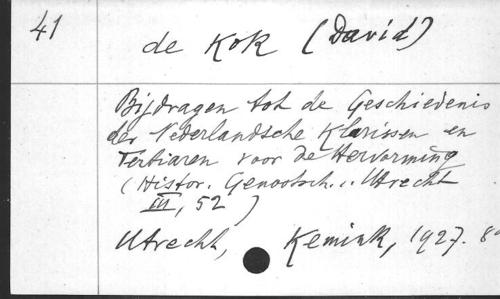 41
de Kok (David)
Bijdragen tot de Geschiedenis
der Nederlandsche Klarissen en
Tertiaren voor de Hervorming
(Histor. Genootsch. .. Utrecht
III, 52 )
Utrecht, Kemink, 1927. 8o